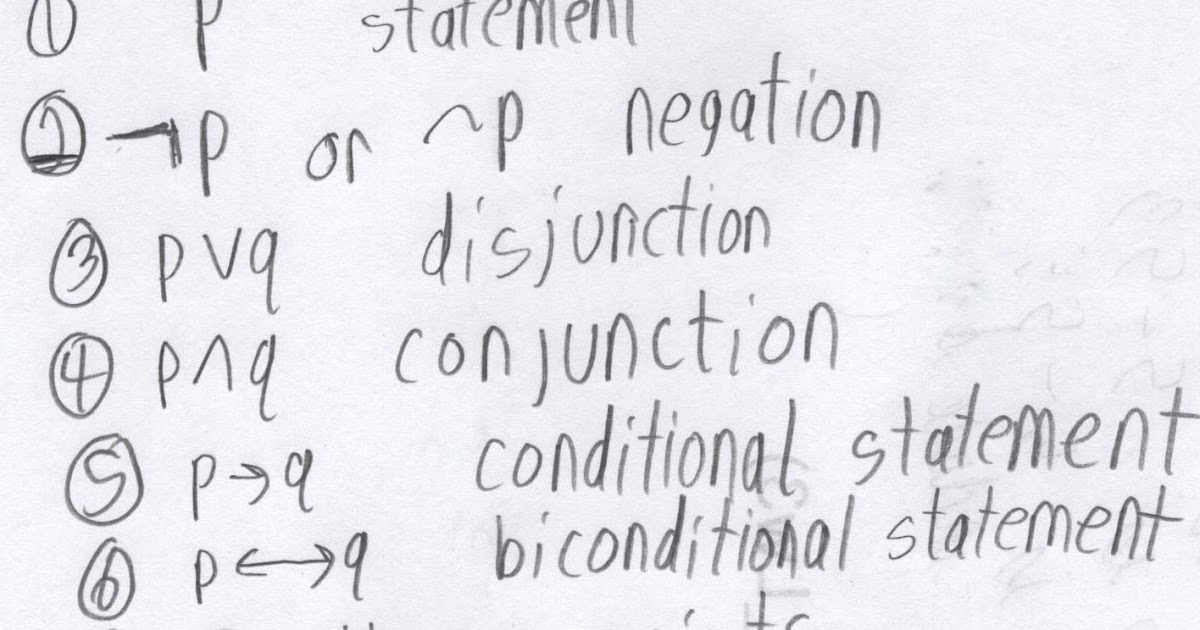 ① p statement
② ¬p or ~p negation
③ p∨q disjunction
④ p∧q conjunction
⑤ p→q conditional statement
⑥ p↔q biconditional statement